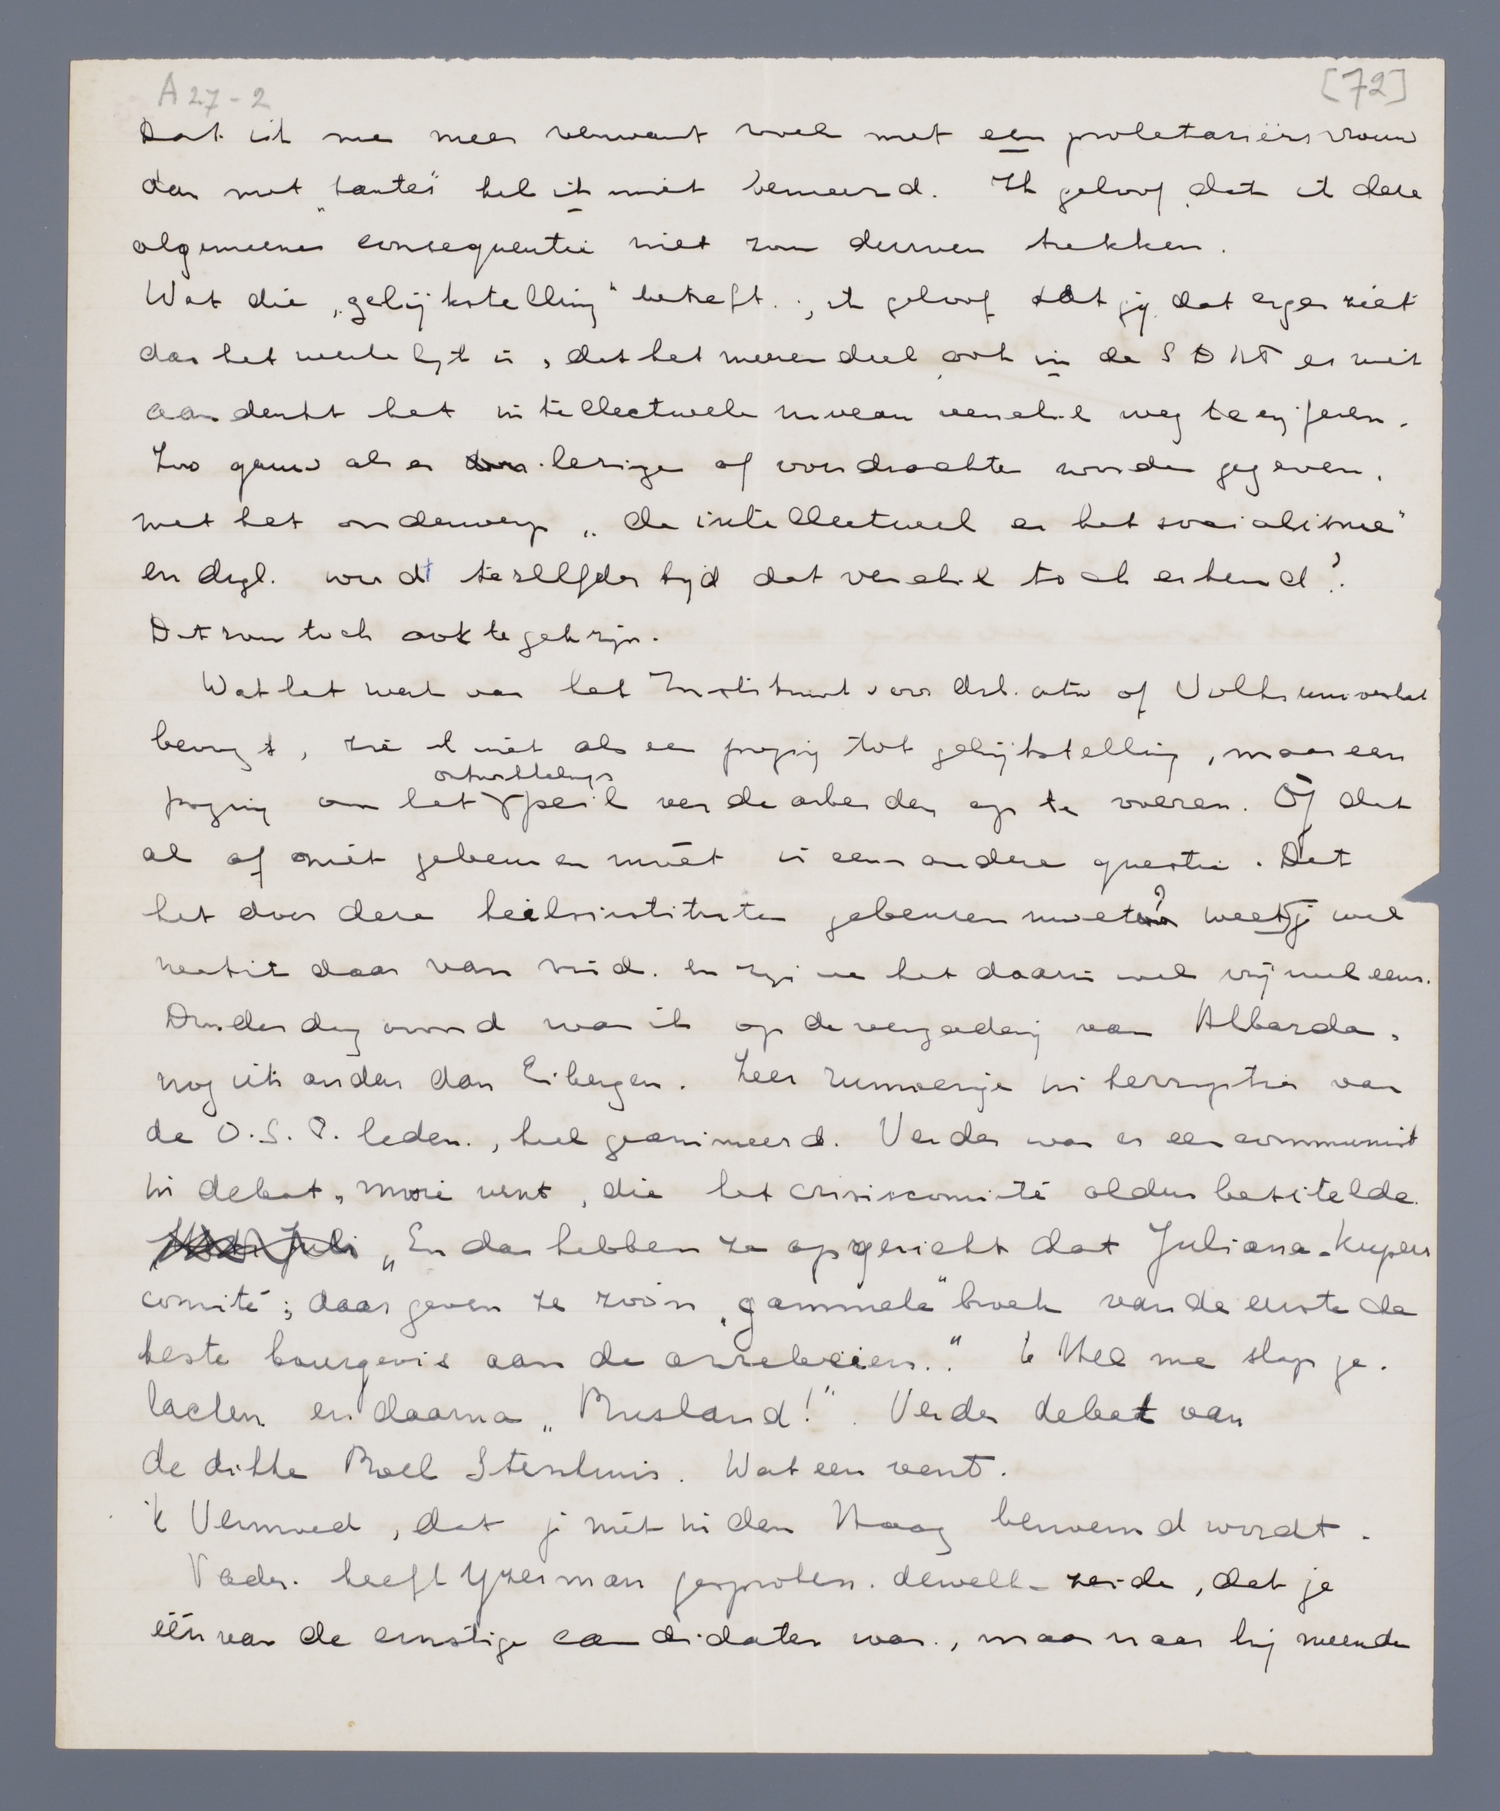 A 27-2
[72]
Dat ik me meer verwant voel met een proletariërsvrouw
dan met "tantes" heb ik niet beweerd. Ik geloof dat ik deze
algemeene consequentie niet zou durven trekken.
Wat die „gelijkstelling" betreft.; ik geloof dat jij dat erger ziet
dan het werkelijk is, dat het meerendeel ook in de SDAP er niet
aan denkt het intellectueele niveau verschil weg te cijferen.
Zoo gauw als er lezingen of voordrachten worden gegeven,
met het onderwerp „de intellectueel en het socialisme"
en dgl. wordt terzelfder tijd dat verschil toch erkend?
Dat zou toch ook te gek zijn.
Wat het werk van het Instituut voor Arb. ontw of Volksuniversiteit
beoogt, zie ik niet als een poging tot gelijkstelling, maar een
ontwikkelings
poging om het peil van de arbeider op te voeren. Of dat
al of niet gebeuren moet is een andere questie. Dat
het door deze heilsinstituten gebeuren moet? weet jij wel
heet ik daar van vind. en zijn we het daarin wel vrijwel eens.
Donderdag avond was ik op de vergadering van Albarda,
nog iets anders dan Eibergen. Zeer rumoerige interrupties van
de O.S.P. leden., heel geanimeerd. Verder was er een communist
in debat, mooie vent, die het crisiscomité aldus betitelde
„En dan hebben ze opgericht dat Juliana-kupers
comité; daar geven ze zoo'n „gammele" broek van de eerste de
beste bourgeois aan de arrebeiers." 'k Heb me slap ge-
lachen en daarna „Rusland!". Verder debat van
de dikke Roel Stenhuis. Wat een vent.
'k Vermoed, dat je niet in den Haag benoemd wordt.
Vader heeft Yzerman gesproken. dewelke zeide, dat je
één van de ernstige candidaten was., maar naar hij meende